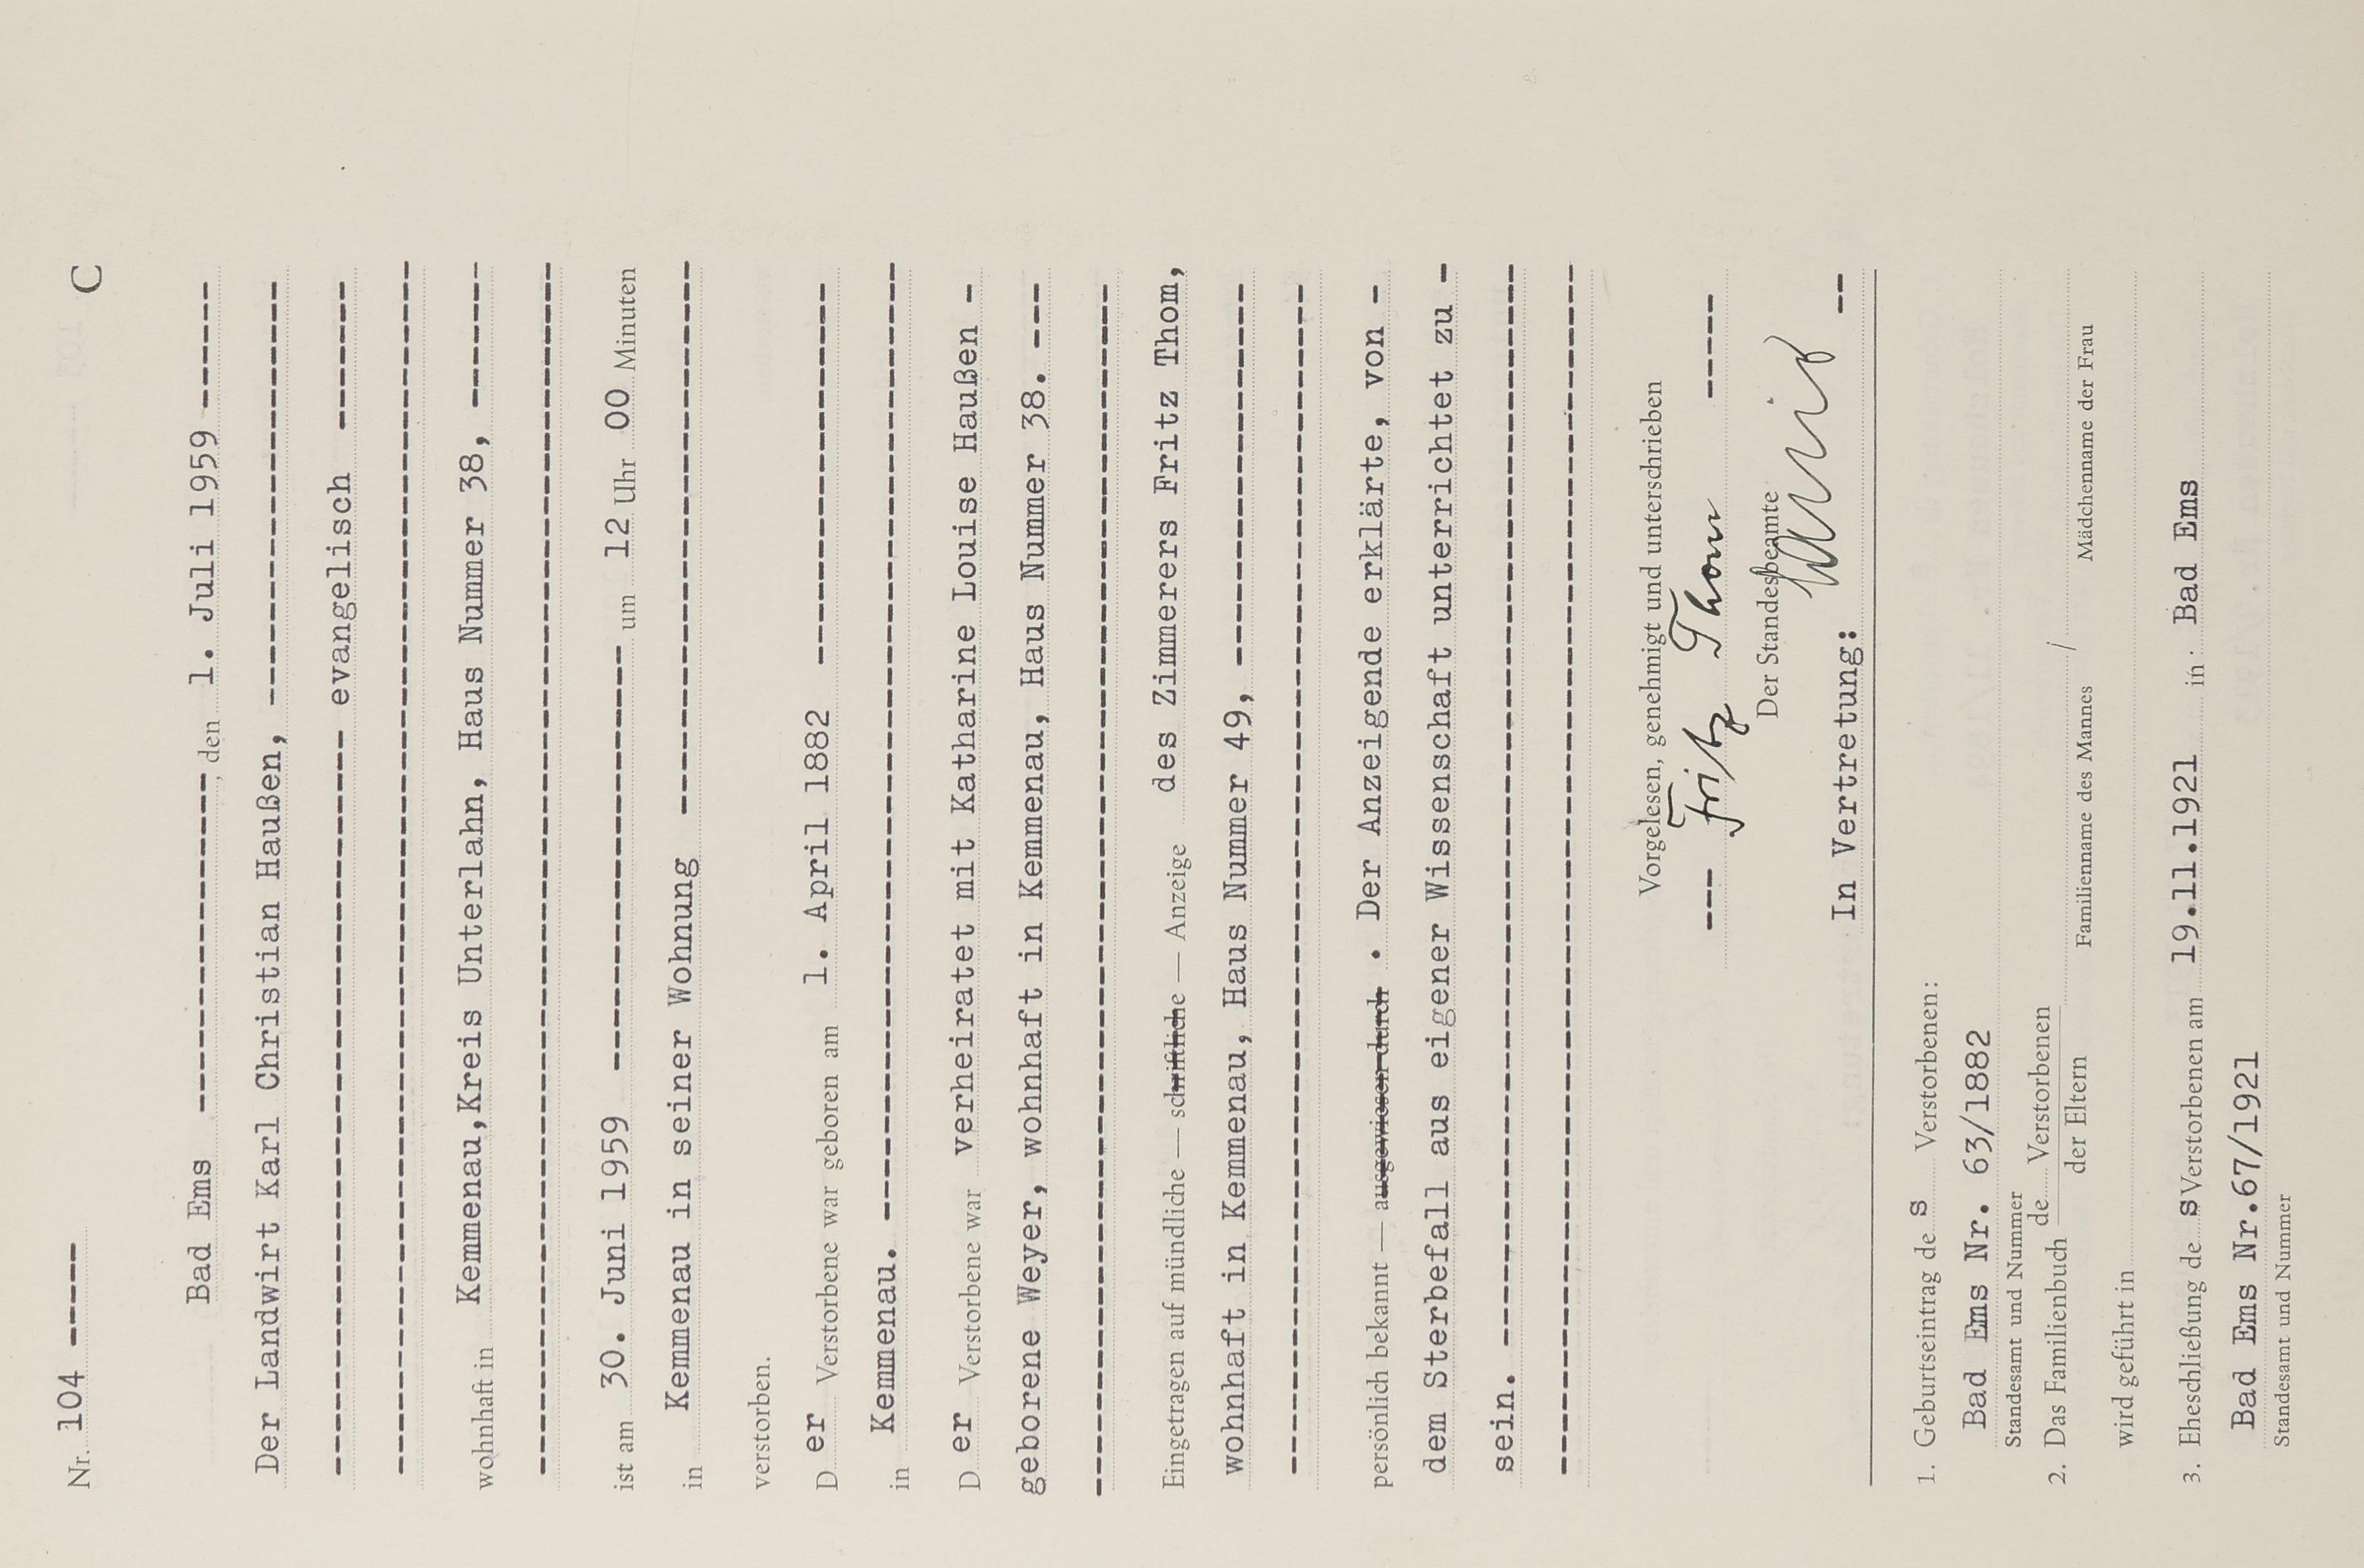 Nr. 104 -----
C
Bad Ems ----------------, den 1. Juli 1959 ------
Der Landwirt Karl Christian Haußen, --------------------
------------------------------------ evangelisch -------
----------------------------------------------------------
wohnhaft in Kemmenau,Kreis Unterlahn, Haus Nummer 38, -------
----------------------------------------------------------
ist am 30. Juni 1959 -------------------- um 12 Uhr 00 Minuten
in Kemmenau in seiner Wohnung --------------------------
verstorben.
D er Verstorbene war geboren am 1. April 1882 ------------------
in Kemmenau. ---------------------------------------------
D er Verstorbene war verheiratet mit Katharine Louise Haußen -
geborene Weyer, wohnhaft in Kemmenau, Haus Nummer 38. ---
----------------------------------------------------------
Eingetragen auf mündliche — schriftliche — Anzeige des Zimmerers Fritz Thom,
wohnhaft in Kemmenau, Haus Nummer 49, ------------------
----------------------------------------------------------
persönlich bekannt — ausgewiesen durch . Der Anzeigende erklärte, von -
dem Sterbefall aus eigener Wissenschaft unterrichtet zu -
sein. ---------------------------------------------------
----------------------------------------------------------
Vorgelesen, genehmigt und unterschrieben
--- Fritz Thom -----
Der Standesbeamte
In Vertretung: --
1. Geburtseintrag de s Verstorbenen:
Bad Ems Nr. 63/1882
Standesamt und Nummer
2. Das Familienbuch de Verstorbenen / 
der Eltern Familienname des Mannes Mädchenname der Frau
wird geführt in
3. Eheschließung de s Verstorbenen am 19.11.1921 in Bad Ems
Bad Ems Nr.67/1921
Standesamt und Nummer